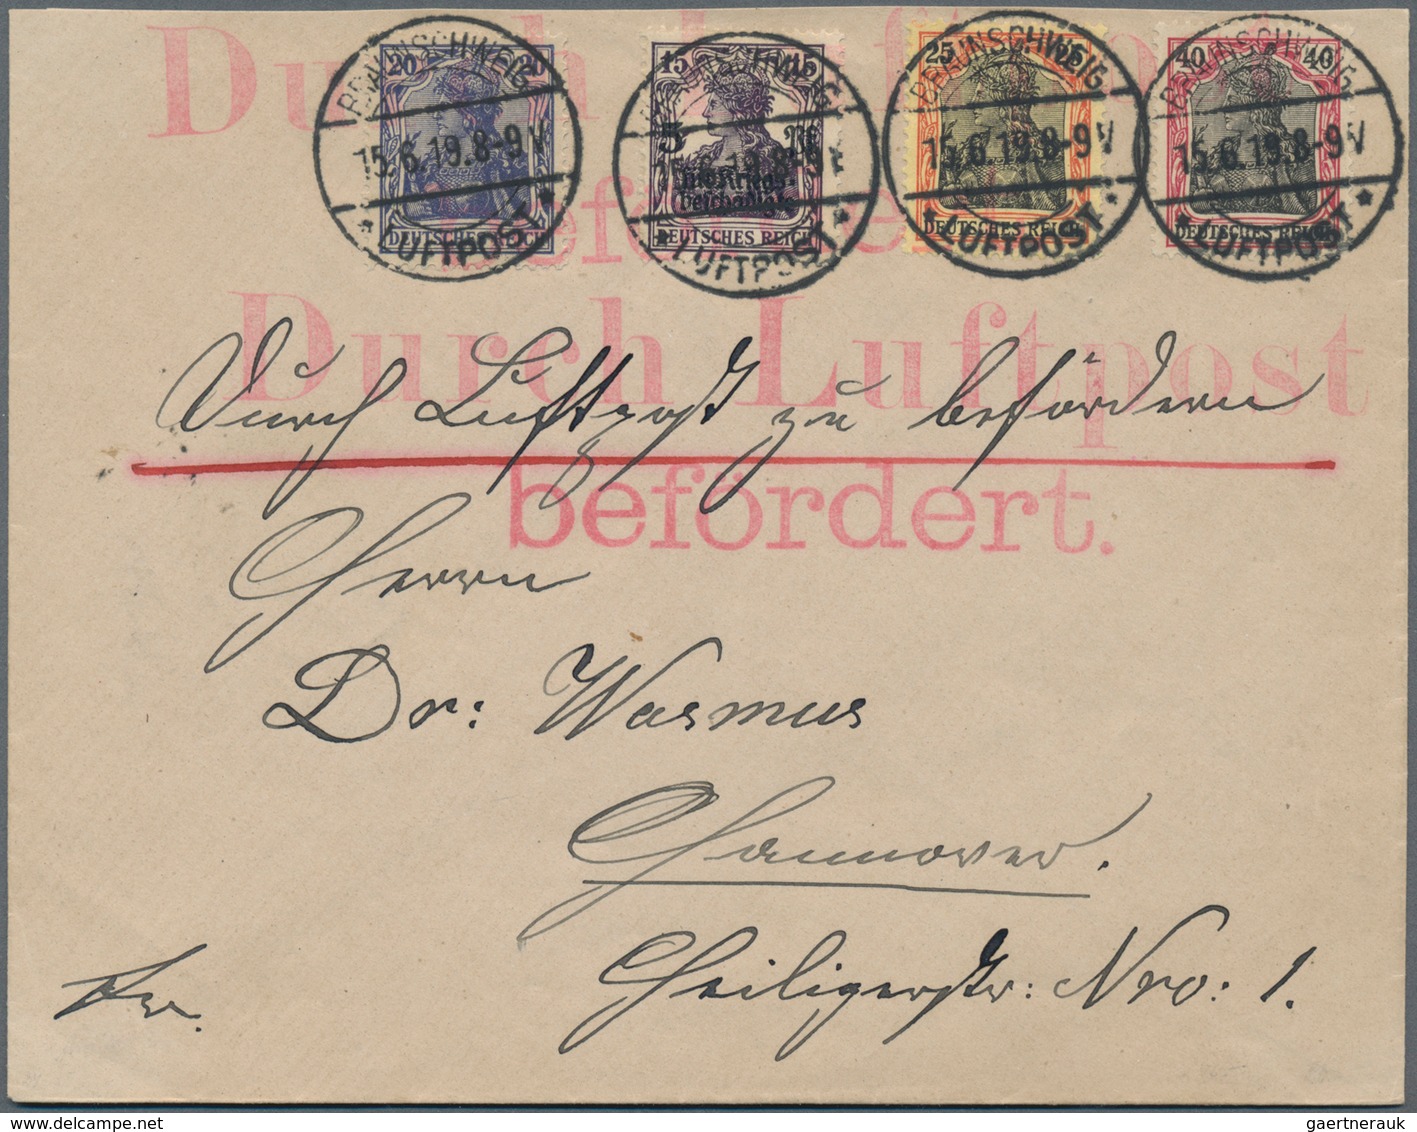 Durch Luftpost
befördert.
20 20
DEUTSCHES REICH
BRAUNSCHWEIG
15.6.19.8-9V
* LUFTPOST *
15 15
5 Pf
für Kriegs-
beschädigte
DEUTSCHES REICH
BRAUNSCHWEIG
15.6.19.8-9V
* LUFTPOST *
25 25
DEUTSCHES REICH
BRAUNSCHWEIG
15.6.19.8-9V
* LUFTPOST *
40 40
DEUTSCHES REICH
BRAUNSCHWEIG
15.6.19.8-9V
* LUFTPOST *
Durch Luftpost
Durch Luftpost zu befördern
befördert.
Herrn
Dr: Wasmus
Hannover.
Heiligerstr: Nro: 1.
Fr.
gaertnerauk